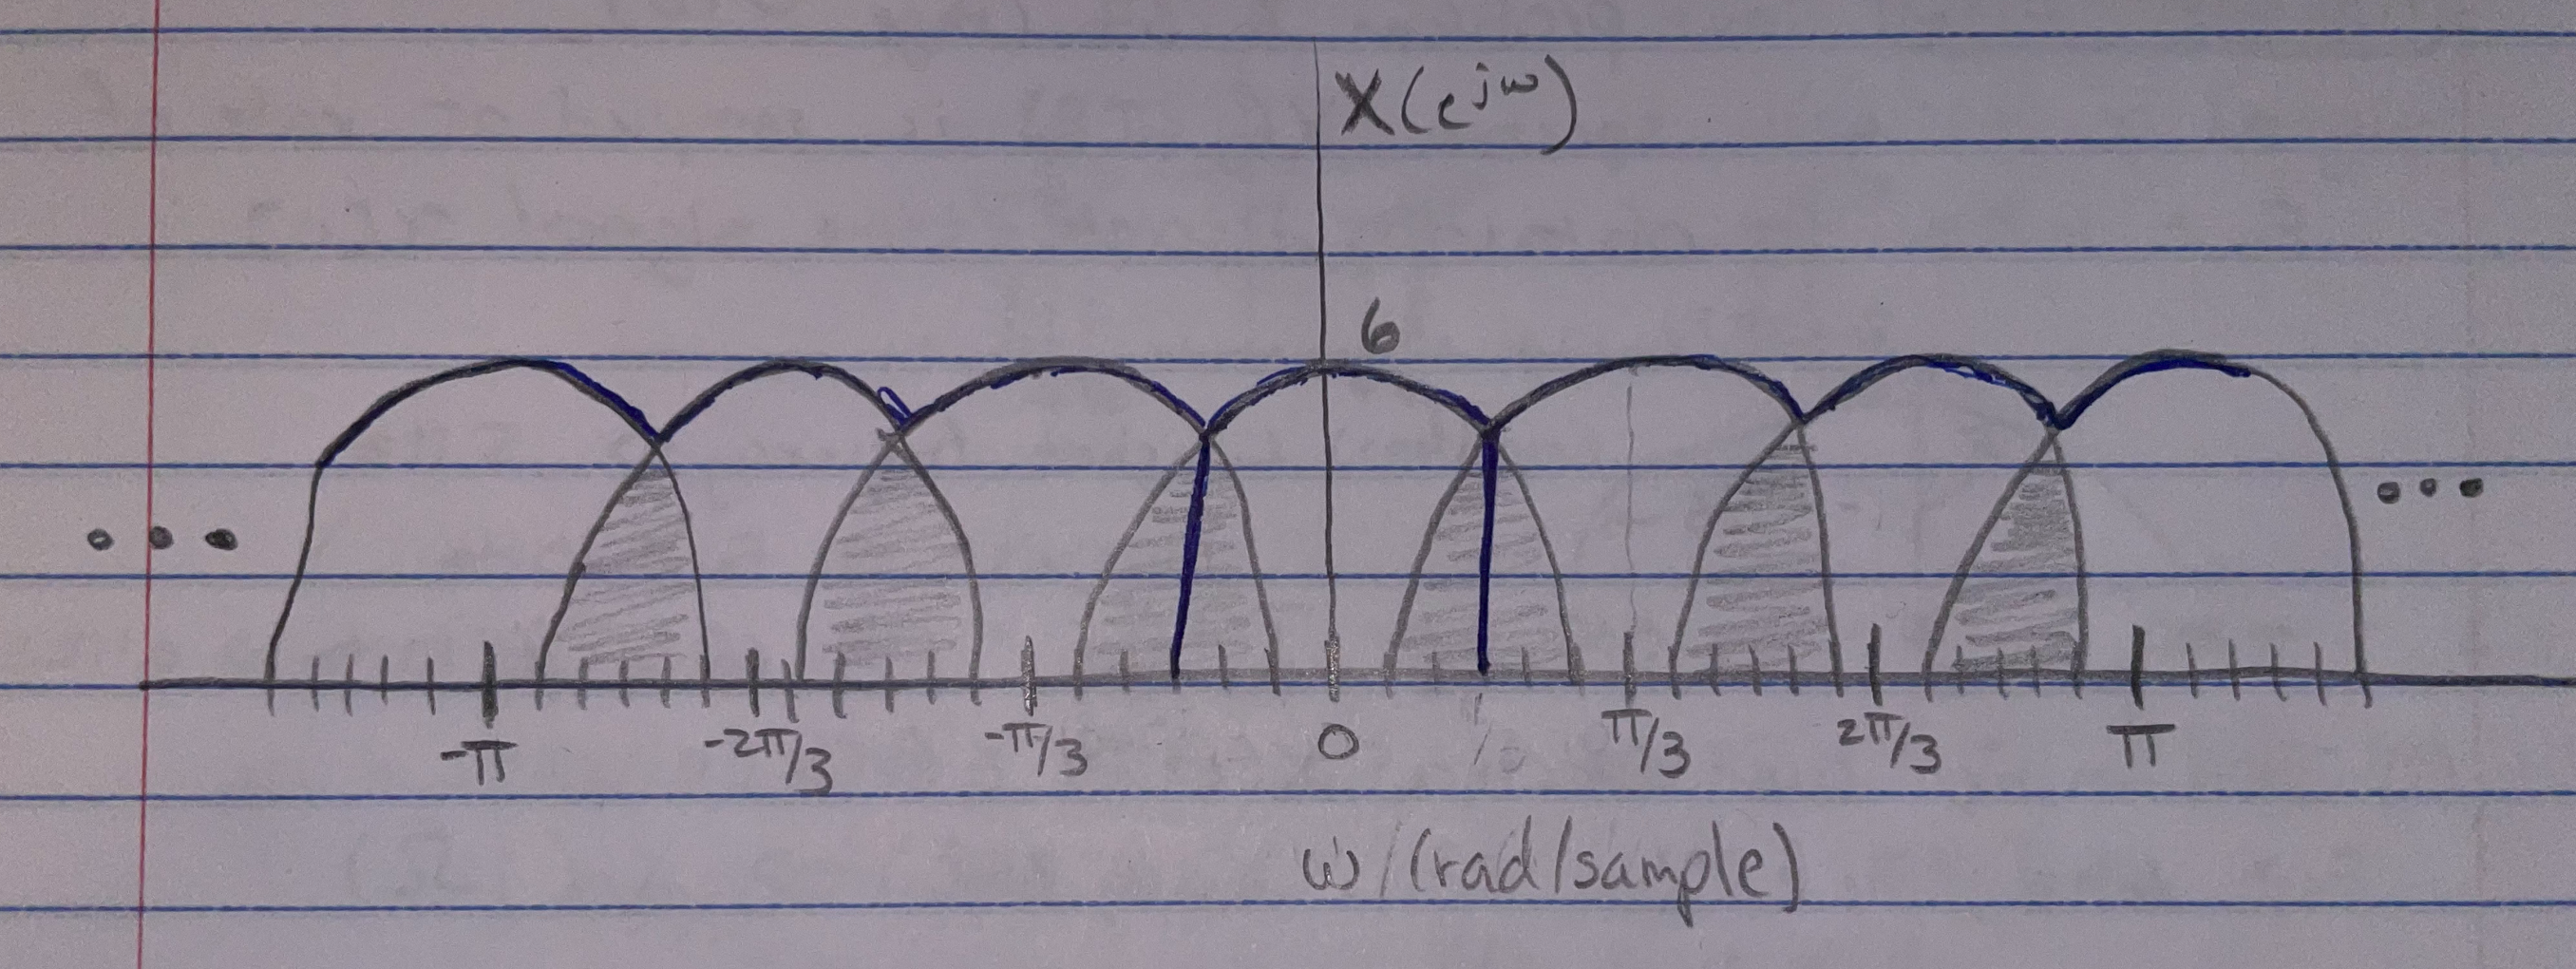 X(e^jω)
6
-π -2π/3 -π/3 0 π/3 2π/3 π
ω/(rad/sample)